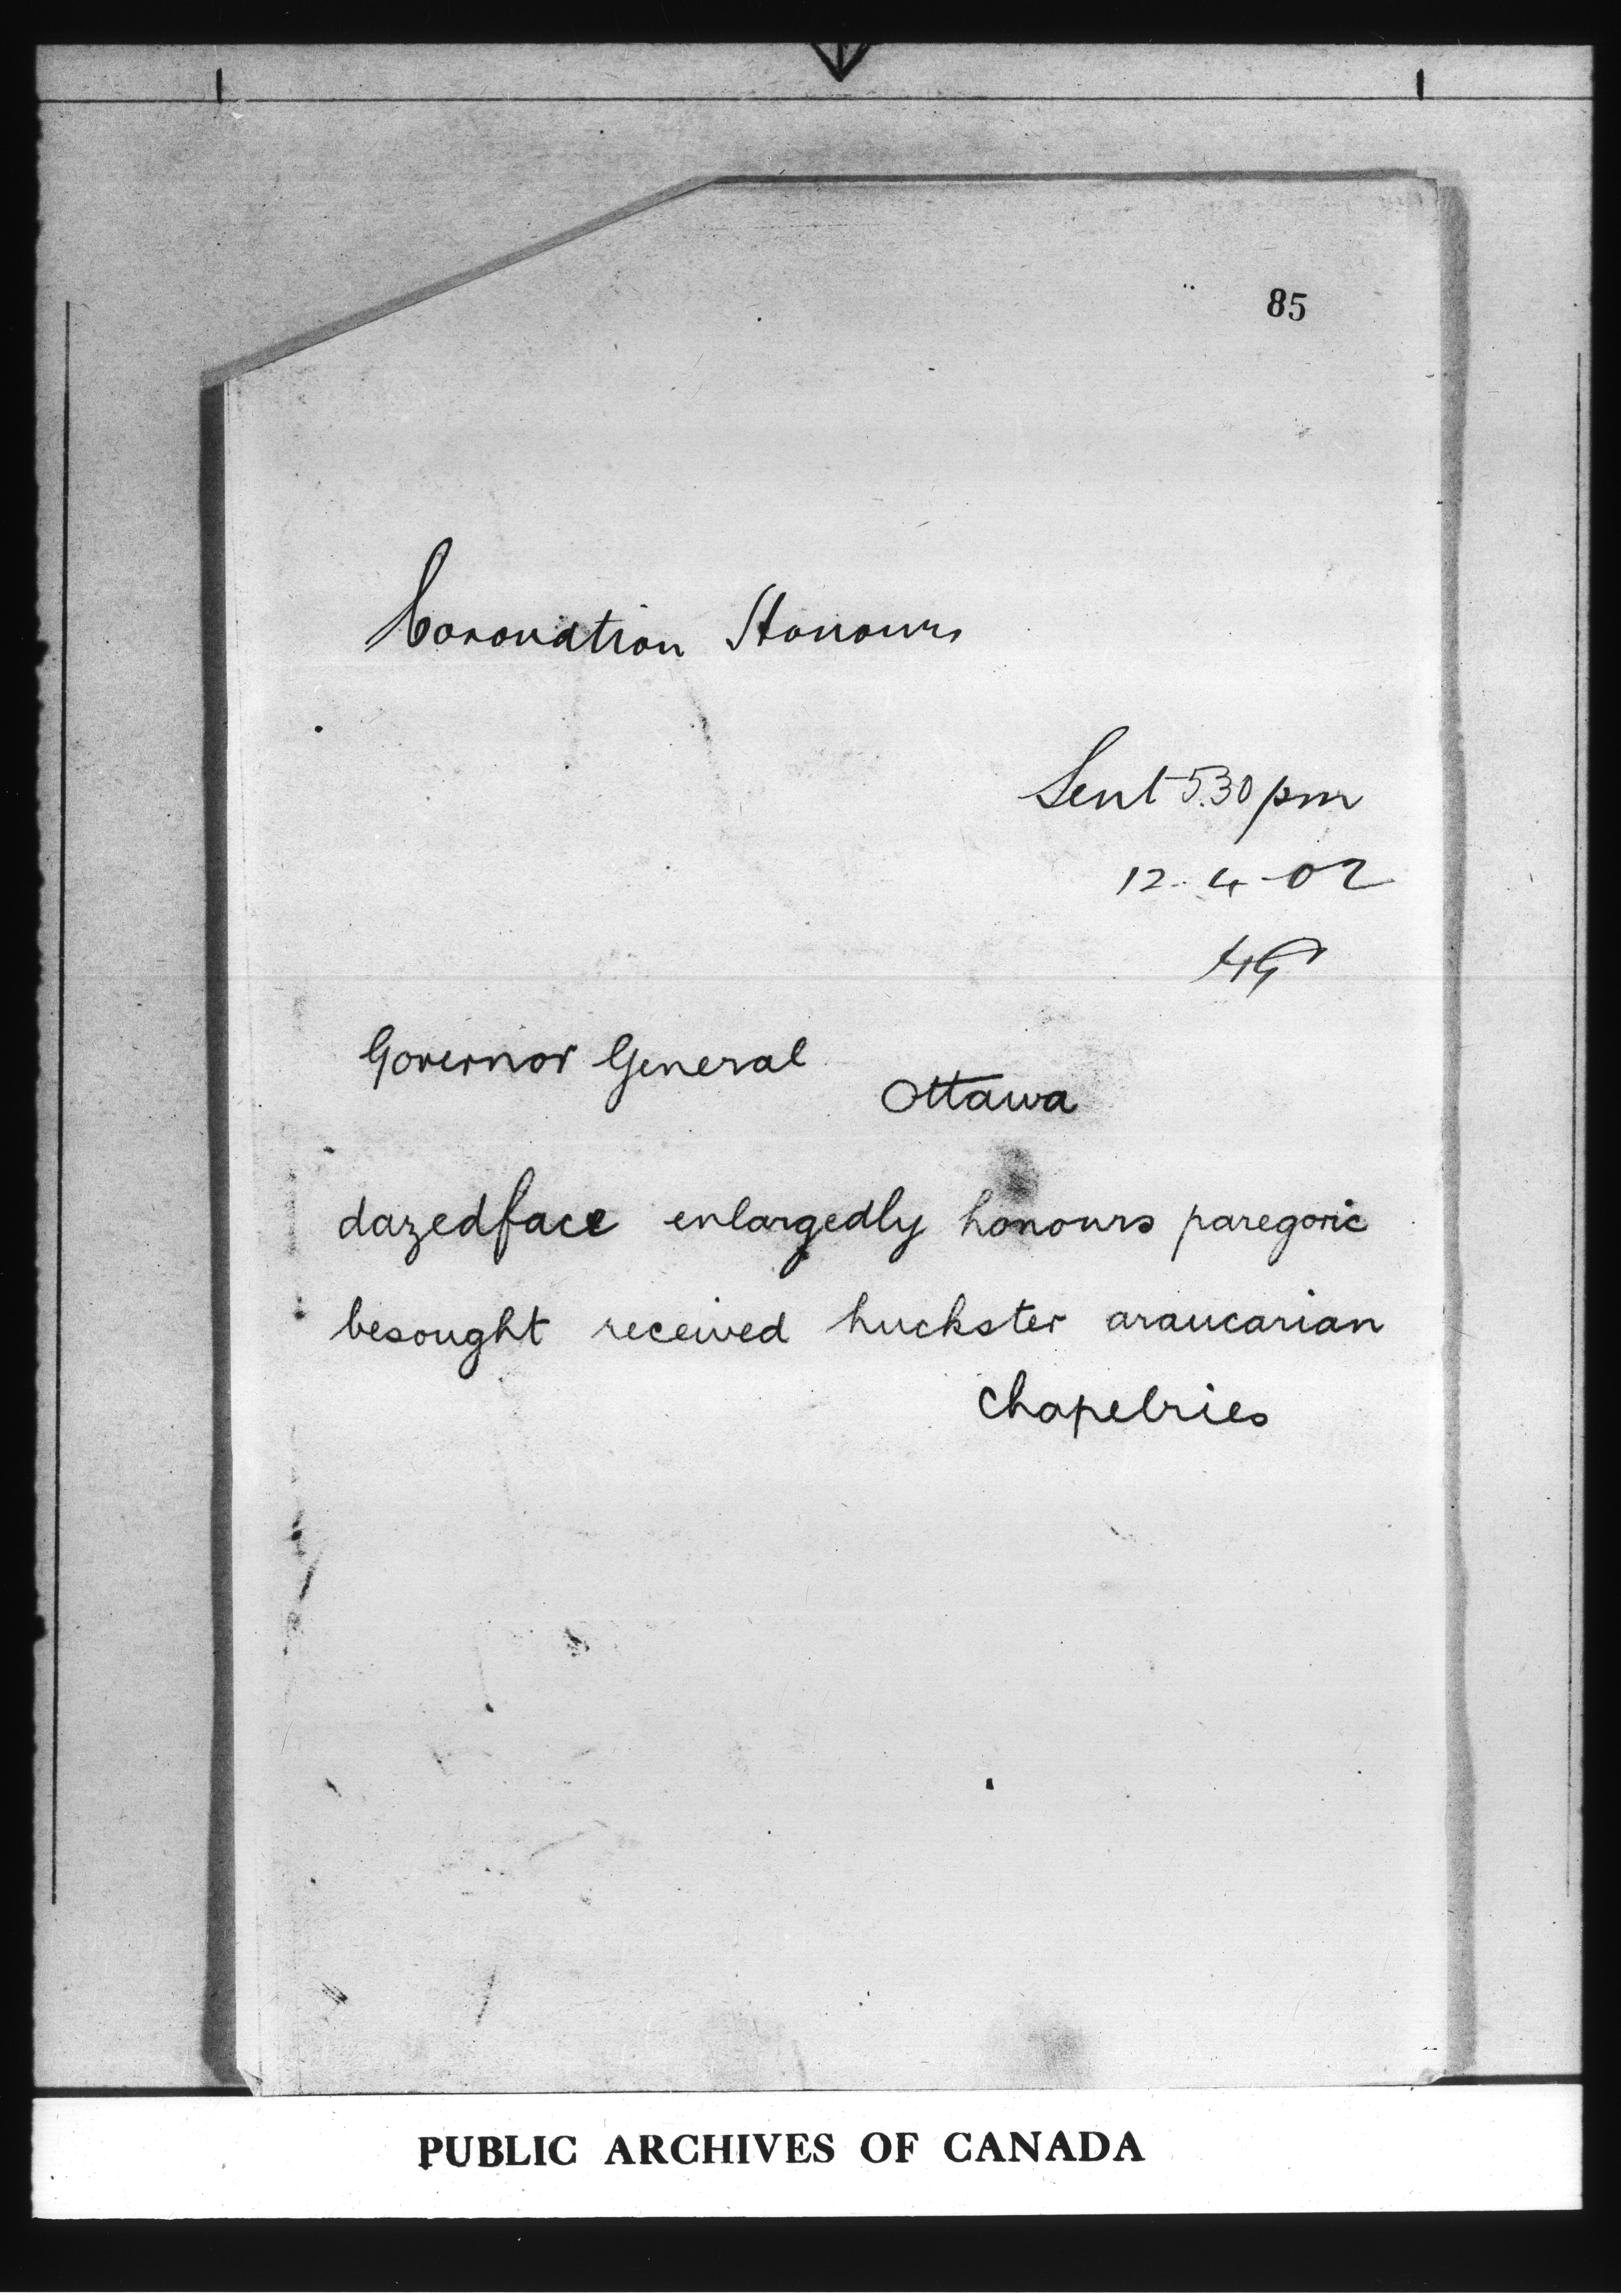 85
Coronation Honours
Sent 5.30 pm
12-4-02
Governor General
Ottawa
dazedface enlargedly honours paregoric
besought received huckster araucarian
chapelries
PUBLIC ARCHIVES OF CANADA